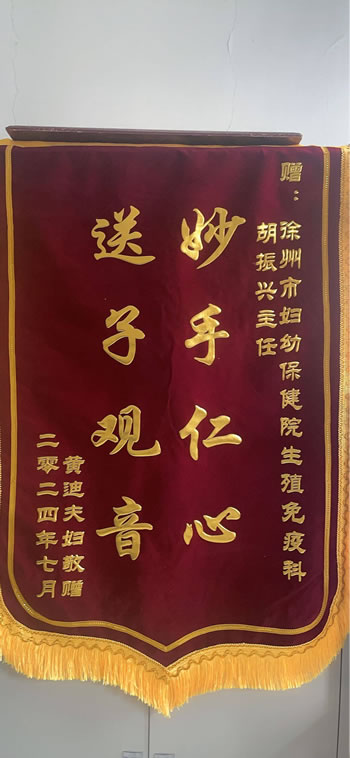 赠：徐州市妇幼保健院生殖免疫科
胡振兴主任
妙手仁心
送子观音
黄迪夫妇敬赠
二零二四年七月